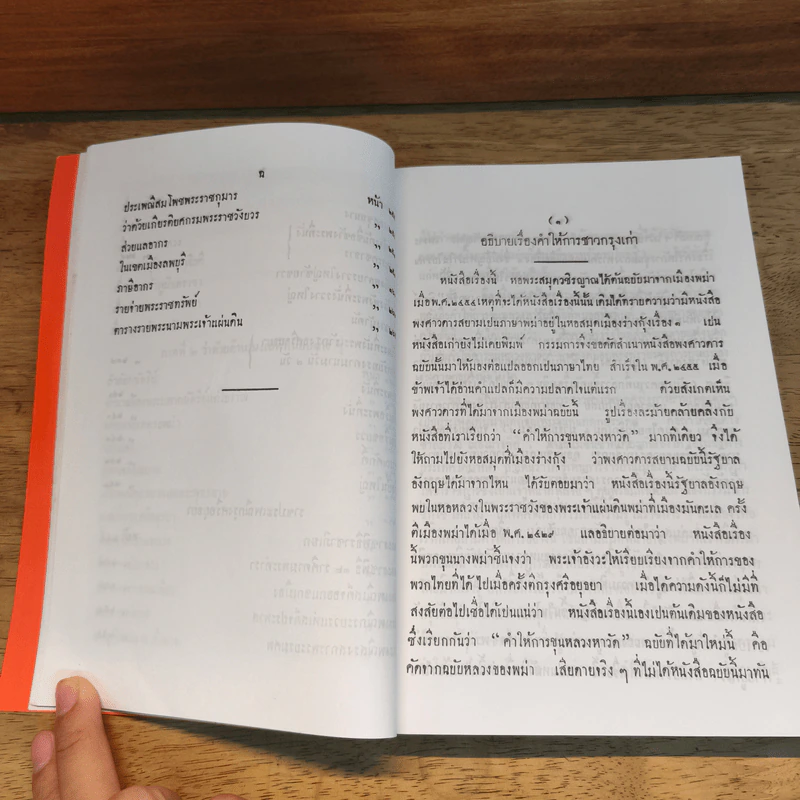 ฑ
ประเพณีสมโพชพระราชกุมาร หน้า
ว่าด้วยเกียรติยศกรมพระราชวังบวร ,,
ส่วยแลอากร ,,
ในเขตเมืองลพบุรี ,,
ภาษีอากร ,,
รายจ่ายพระราชทรัพย์ ,,
ตารางรายพระนามพระเจ้าแผ่นดิน ,,
(๑)
อธิบายเรื่องคำให้การชาวกรุงเก่า
หนังสือเรื่องนี้ หอพระสมุดวชิรญาณได้ต้นฉบับมาจากเมืองพม่า
เมื่อ พ.ศ. ๒๔๕๔ เหตุที่จะได้หนังสือเรื่องนี้นั้น เดิมได้ทราบความว่ามีหนังสือ
พงศาวดารสยามเปนภาษาพม่าอยู่ในหอสมุดเมืองร่างกุ้งเรื่อง ๑ เปน
หนังสือเก่ายังไม่เคยพิมพ์ กรรมการจึงขอคัดสำเนาหนังสือพงศาวดาร
ฉบับนั้นมาให้มองต่อแปลออกเปนภาษาไทย สำเร็จใน พ.ศ. ๒๔๕๕ เมื่อ
ข้าพเจ้าได้อ่านคำแปลก็มีความปลาดใจแต่แรก ด้วยสังเกตเห็น
พงศาวดารที่ได้มาจากเมืองพม่าฉบับนี้ รูปเรื่องละม้ายคล้ายคลึงกับ
หนังสือที่เราเรียกว่า “คำให้การขุนหลวงหาวัด” มากทีเดียว จึงได้
ให้ถามไปยังหอสมุดที่เมืองร่างกุ้ง ว่าพงศาวดารสยามฉบับนี้รัฐบาล
อังกฤษได้มาจากไหน ได้รับตอบมาว่า หนังสือเรื่องนี้รัฐบาลอังกฤษ
พบในหอหลวงในพระราชวังของพระเจ้าแผ่นดินพม่าที่เมืองมันดะเล ครั้ง
ตีเมืองพม่าได้เมื่อ พ.ศ. ๒๔๒๙ แลอธิบายต่อมาว่า หนังสือเรื่อง
นี้พวกขุนนางพม่าชี้แจงว่า พระเจ้าอังวะให้เรียบเรียงจากคำให้การของ
พวกไทยที่ได้ไปเมื่อครั้งตีกรุงศรีอยุธยา เมื่อได้ความดังนี้ก็ไม่มีที่
สงสัยต่อไปเชื่อได้เปนแน่ว่า หนังสือเรื่องนี้เองเปนต้นเดิมของหนังสือ
ซึ่งเรียกกันว่า “คำให้การขุนหลวงหาวัด” ฉบับที่ได้มาใหม่นี้ คือ
คัดจากฉบับหลวงของพม่า เสียดายจริง ๆ ที่ไม่ได้หนังสือฉบับนี้มาทัน